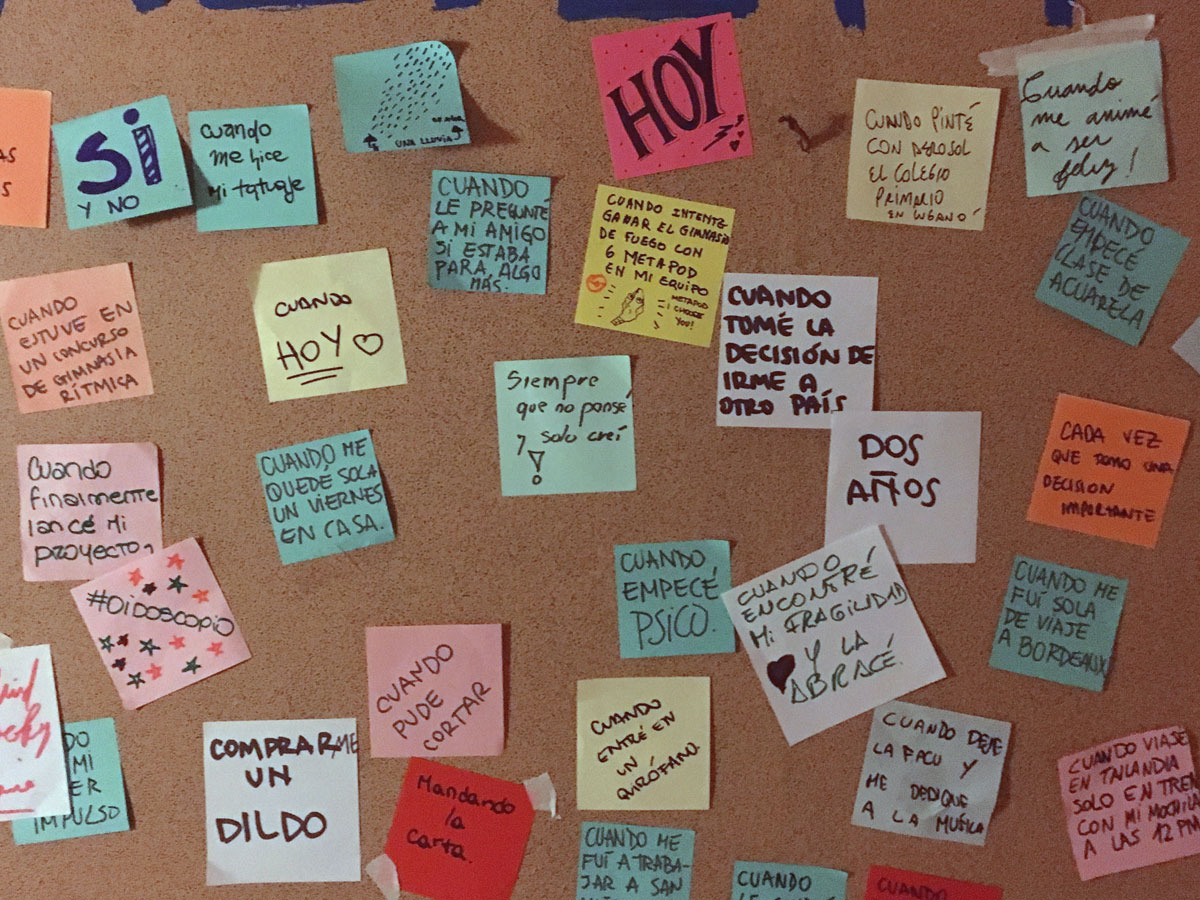 AS
S
SI
Y NO
cuando
me hice
mi tatuaje
UNA LLUVIA
HOY
CUANDO PINTÉ
CON AEROSOL
EL COLEGIO
PRIMARIO
EN LUGANO
Cuando
me animé
a ser
feliz!
CUANDO
LE PREGUNTÉ
A MI AMIGO
SI ESTABA
PARA ALGO
MÁS.
CUANDO INTENTÉ
GANAR EL GIMNASIO
DE FUEGO CON
6 METAPOD
EN MI EQUIPO
METAPOD
I CHOOSE
YOU!
CUANDO
EMPECÉ
CLASE DE
ACUARELA
CUANDO
ESTUVE EN
UN CONCURSO
DE GIMNASIA
RÍTMICA
CUANDO
HOY
CUANDO
TOMÉ LA
DECISIÓN DE
IRME A
OTRO PAÍS
Siempre
que no pensé
y solo creí
!
DOS
AÑOS
CADA VEZ
QUE TOMO UNA
DECISION
IMPORTANTE
Cuando
finalmente
lancé mi
proyecto
CUANDO ME
QUEDÉ SOLA
UN VIERNES
EN CASA.
#Oidoscopio
CUANDO
EMPECÉ
PSICO.
CUANDO
ENCONTRÉ
MI FRAGILIDAD
Y LA
ABRACÉ.
CUANDO ME
FUÍ SOLA
DE VIAJE
A BORDEAUX
CUANDO
PUDE
CORTAR
CUANDO
ENTRÉ EN
UN
QUIRÓFANO.
CUANDO DEJE
LA FACU Y
ME DEDIQUE
A LA MÚSICA
CUANDO VIAJE
EN TAILANDIA
SOLO EN TREN
CON MI MOCHILA
A LAS 12 PM
DO
MI
ER
IMPULSO
COMPRARME
UN
DILDO
Mandando
la
carta.
CUANDO ME
FUÍ A TRABA-
JAR A SAN
CUANDO
CUANDO